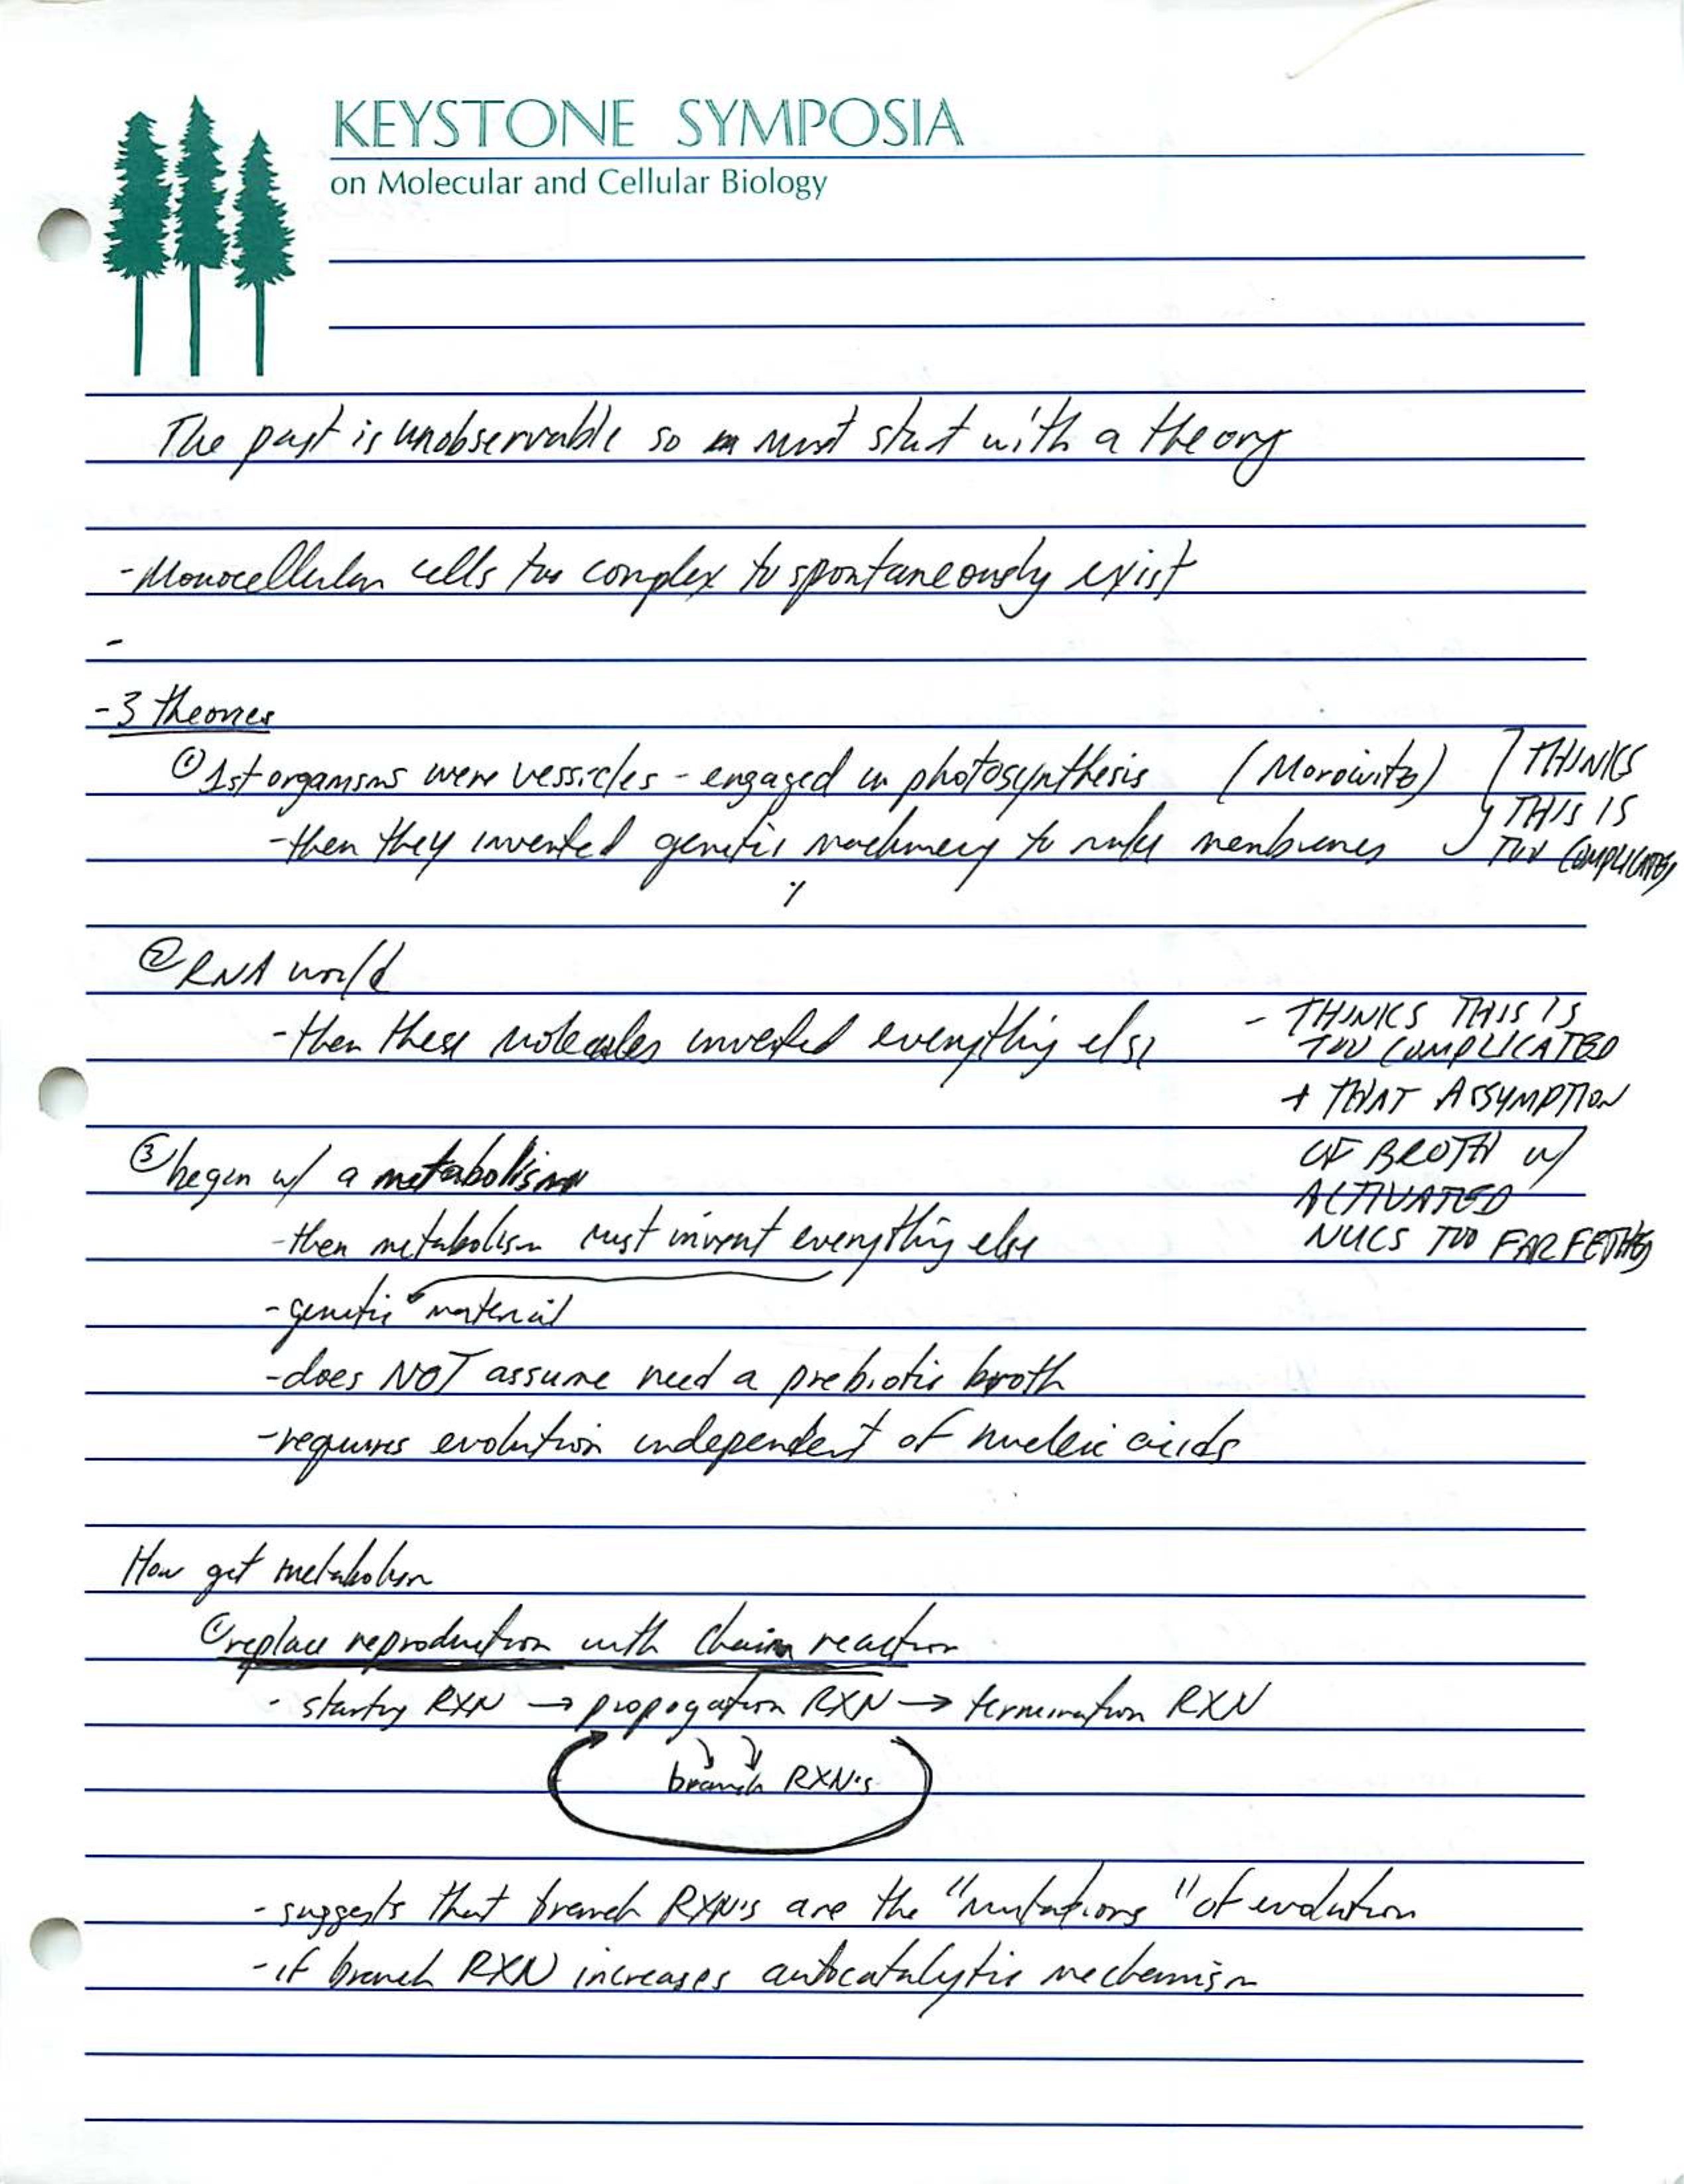 KEYSTONE SYMPOSIA
on Molecular and Cellular Biology
The past is unobservable so must start with a theory
- Monocellular cells too complex to spontaneously exist
-
- 3 theories
① 1st organisms were vessicles - engaged in photosynthesis (Morowitz)
- then they invented genetic machinery to make membranes
} THINKS
THIS IS
TOO COMPLICATED
② RNA world
- then these molecules invented everything else
- THINKS THIS IS
TOO COMPLICATED
+ THAT ASSYMPTION
OF BROTH w/
ACTIVATED
NUCS TOO FAR FETCHED
③ began w/ a metabolism
- then metabolism must invent everything else
- genetic material
- does NOT assume need a prebiotic broth
- requires evolution independent of nucleic acids
How get metabolism
① replace reproduction with chain reaction
- starting RXN → propogation RXN → termination RXN
branch RXN's
- suggests that branch RXN's are the "mutations" of evolution
- if branch RXN increases autocatalytic mechanism